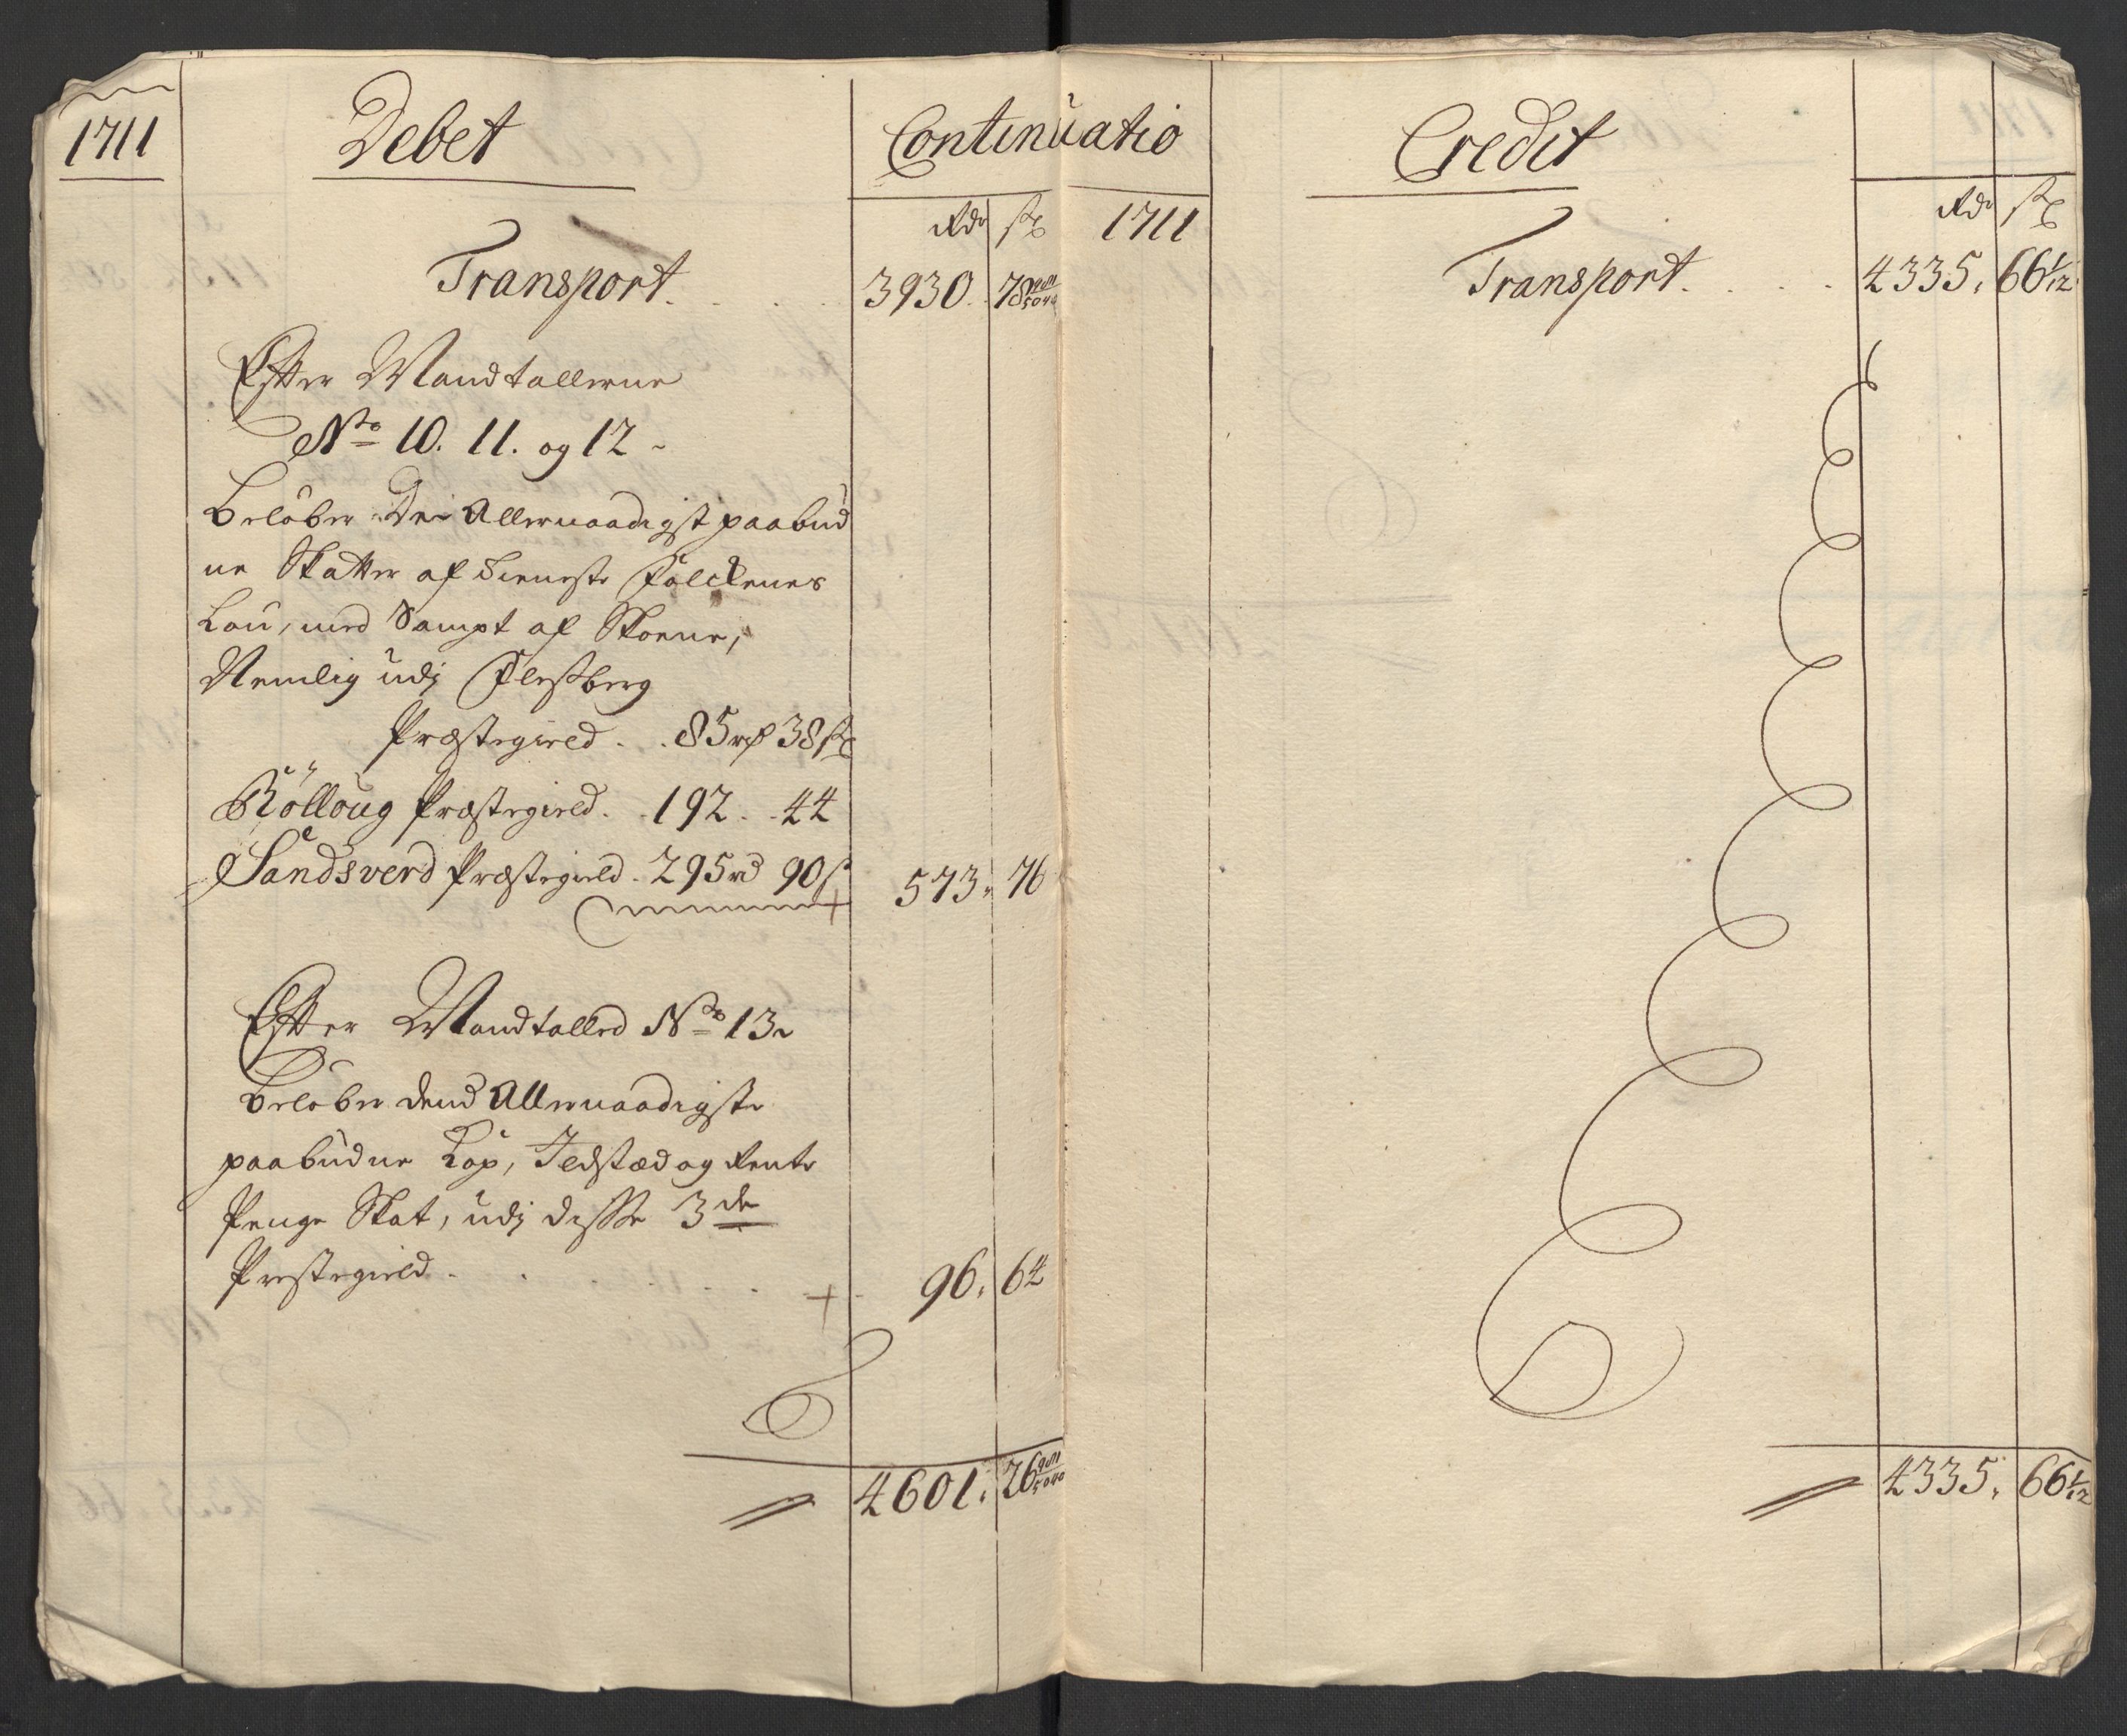 1711
Debet
Continuatio
Rdr ß
Transport. . . . 3930. 78 981/5040
Effter Mandtallerne
No 10. 11. og 12 -
Beløber De Allernaadigst paabud
ne Skatter af Tieneste Folckenes
Løn, med Sampt af Skoene,
Nemlig udj Flesberg
Præstegield . . 85 rd 38 ß
Rølloug Præstegield. . 192 . . 44
Sandsverd Præstegield . 295 rd 90 ß 573. 76
Effter Mandtalled No 13.
Beløber dend Allernaadigste
paabudne Kop, Ildsted og Rente
Penge Skat, udj disse 3de
Prestegield . . . . . 96. 64
4601. 26 981/5040
1711
Credit
Rdr ß
Transport. . . . 4335. 66 1/12
4335. 66 1/12